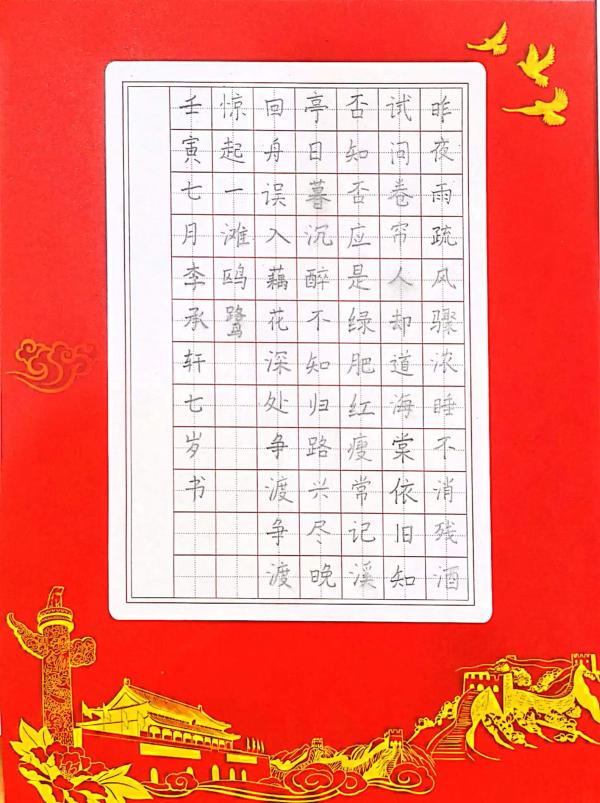 昨夜雨疏风骤浓睡不消残酒
试问卷帘人却道海棠依旧知
否知否应是绿肥红瘦常记溪
亭日暮沉醉不知归路兴尽晚
回舟误入藕花深处争渡争渡
惊起一滩鸥鹭
壬寅七月李承轩七岁书